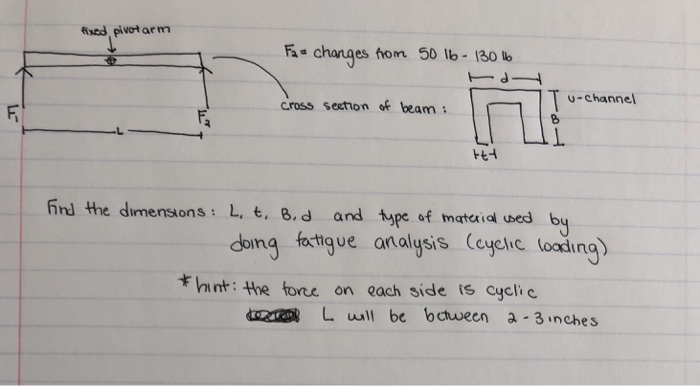 fixed pivot arm
F₂ = changes from 50 lb - 130 lb
d
cross section of beam :
u-channel
B
F₁
F₂
L
t
Find the dimensions : L, t, B, d and type of material used by
doing fatigue analysis (cyclic loading)
* hint : the force on each side is cyclic
L will be between 2 - 3 inches